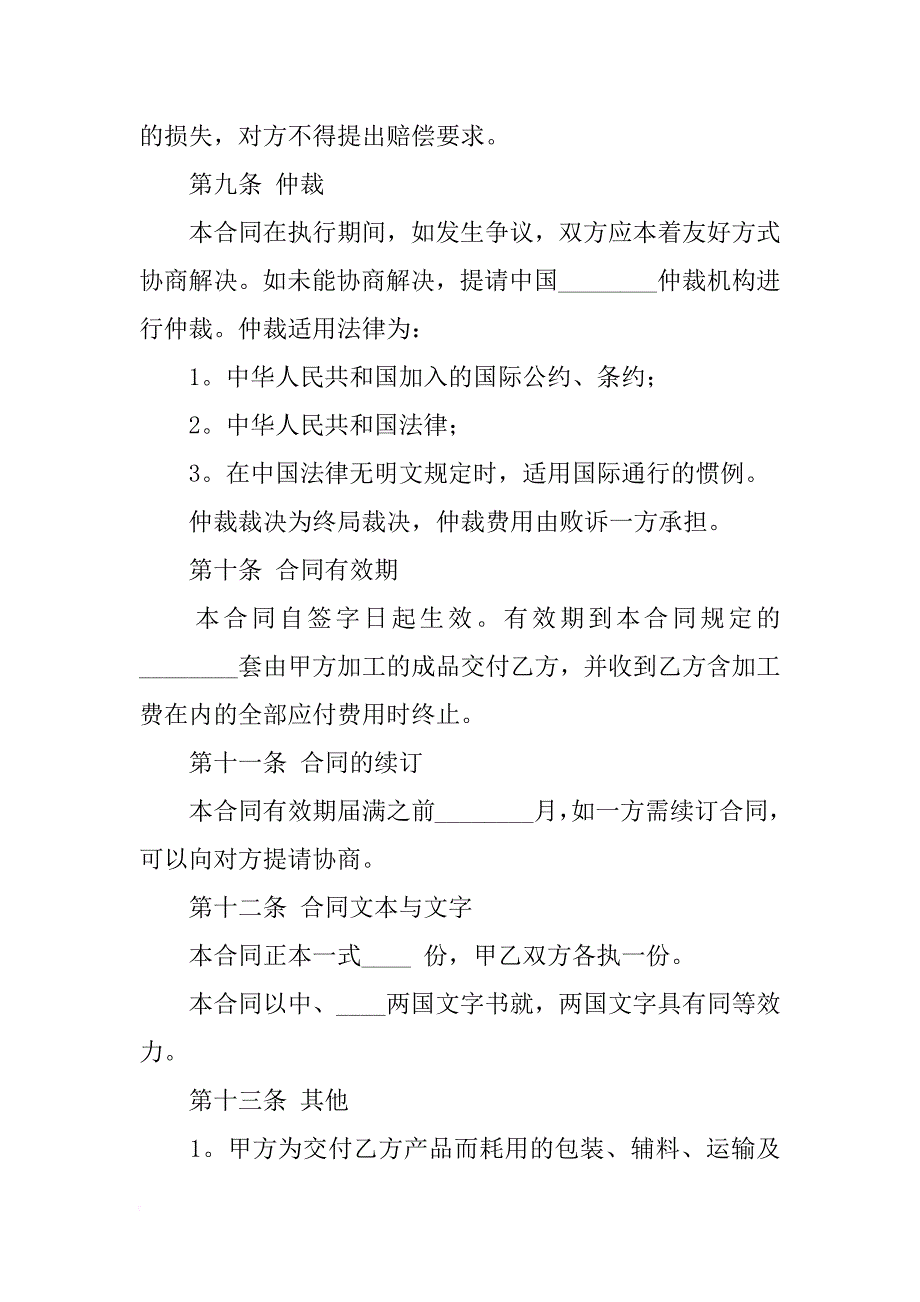 的损失，对方不得提出赔偿要求。
第九条 仲裁
本合同在执行期间，如发生争议，双方应本着友好方式
协商解决。如未能协商解决，提请中国________仲裁机构进
行仲裁。仲裁适用法律为：
1。中华人民共和国加入的国际公约、条约；
2。中华人民共和国法律；
3。在中国法律无明文规定时，适用国际通行的惯例。
仲裁裁决为终局裁决，仲裁费用由败诉一方承担。
第十条 合同有效期
本合同自签字日起生效。有效期到本合同规定的
________套由甲方加工的成品交付乙方，并收到乙方含加工
费在内的全部应付费用时终止。
第十一条 合同的续订
本合同有效期届满之前________月，如一方需续订合同，
可以向对方提请协商。
第十二条 合同文本与文字
本合同正本一式____ 份，甲乙双方各执一份。
本合同以中、____两国文字书就，两国文字具有同等效
力。
第十三条 其他
1。甲方为交付乙方产品而耗用的包装、辅料、运输及